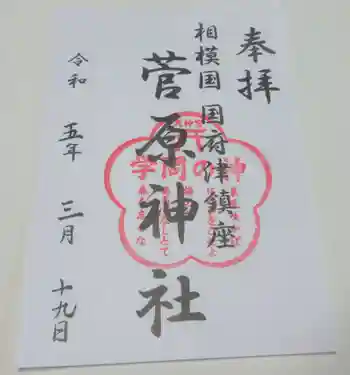 奉拝
相模国国府津鎮座
菅原神社
令和五年三月十九日
学問の神